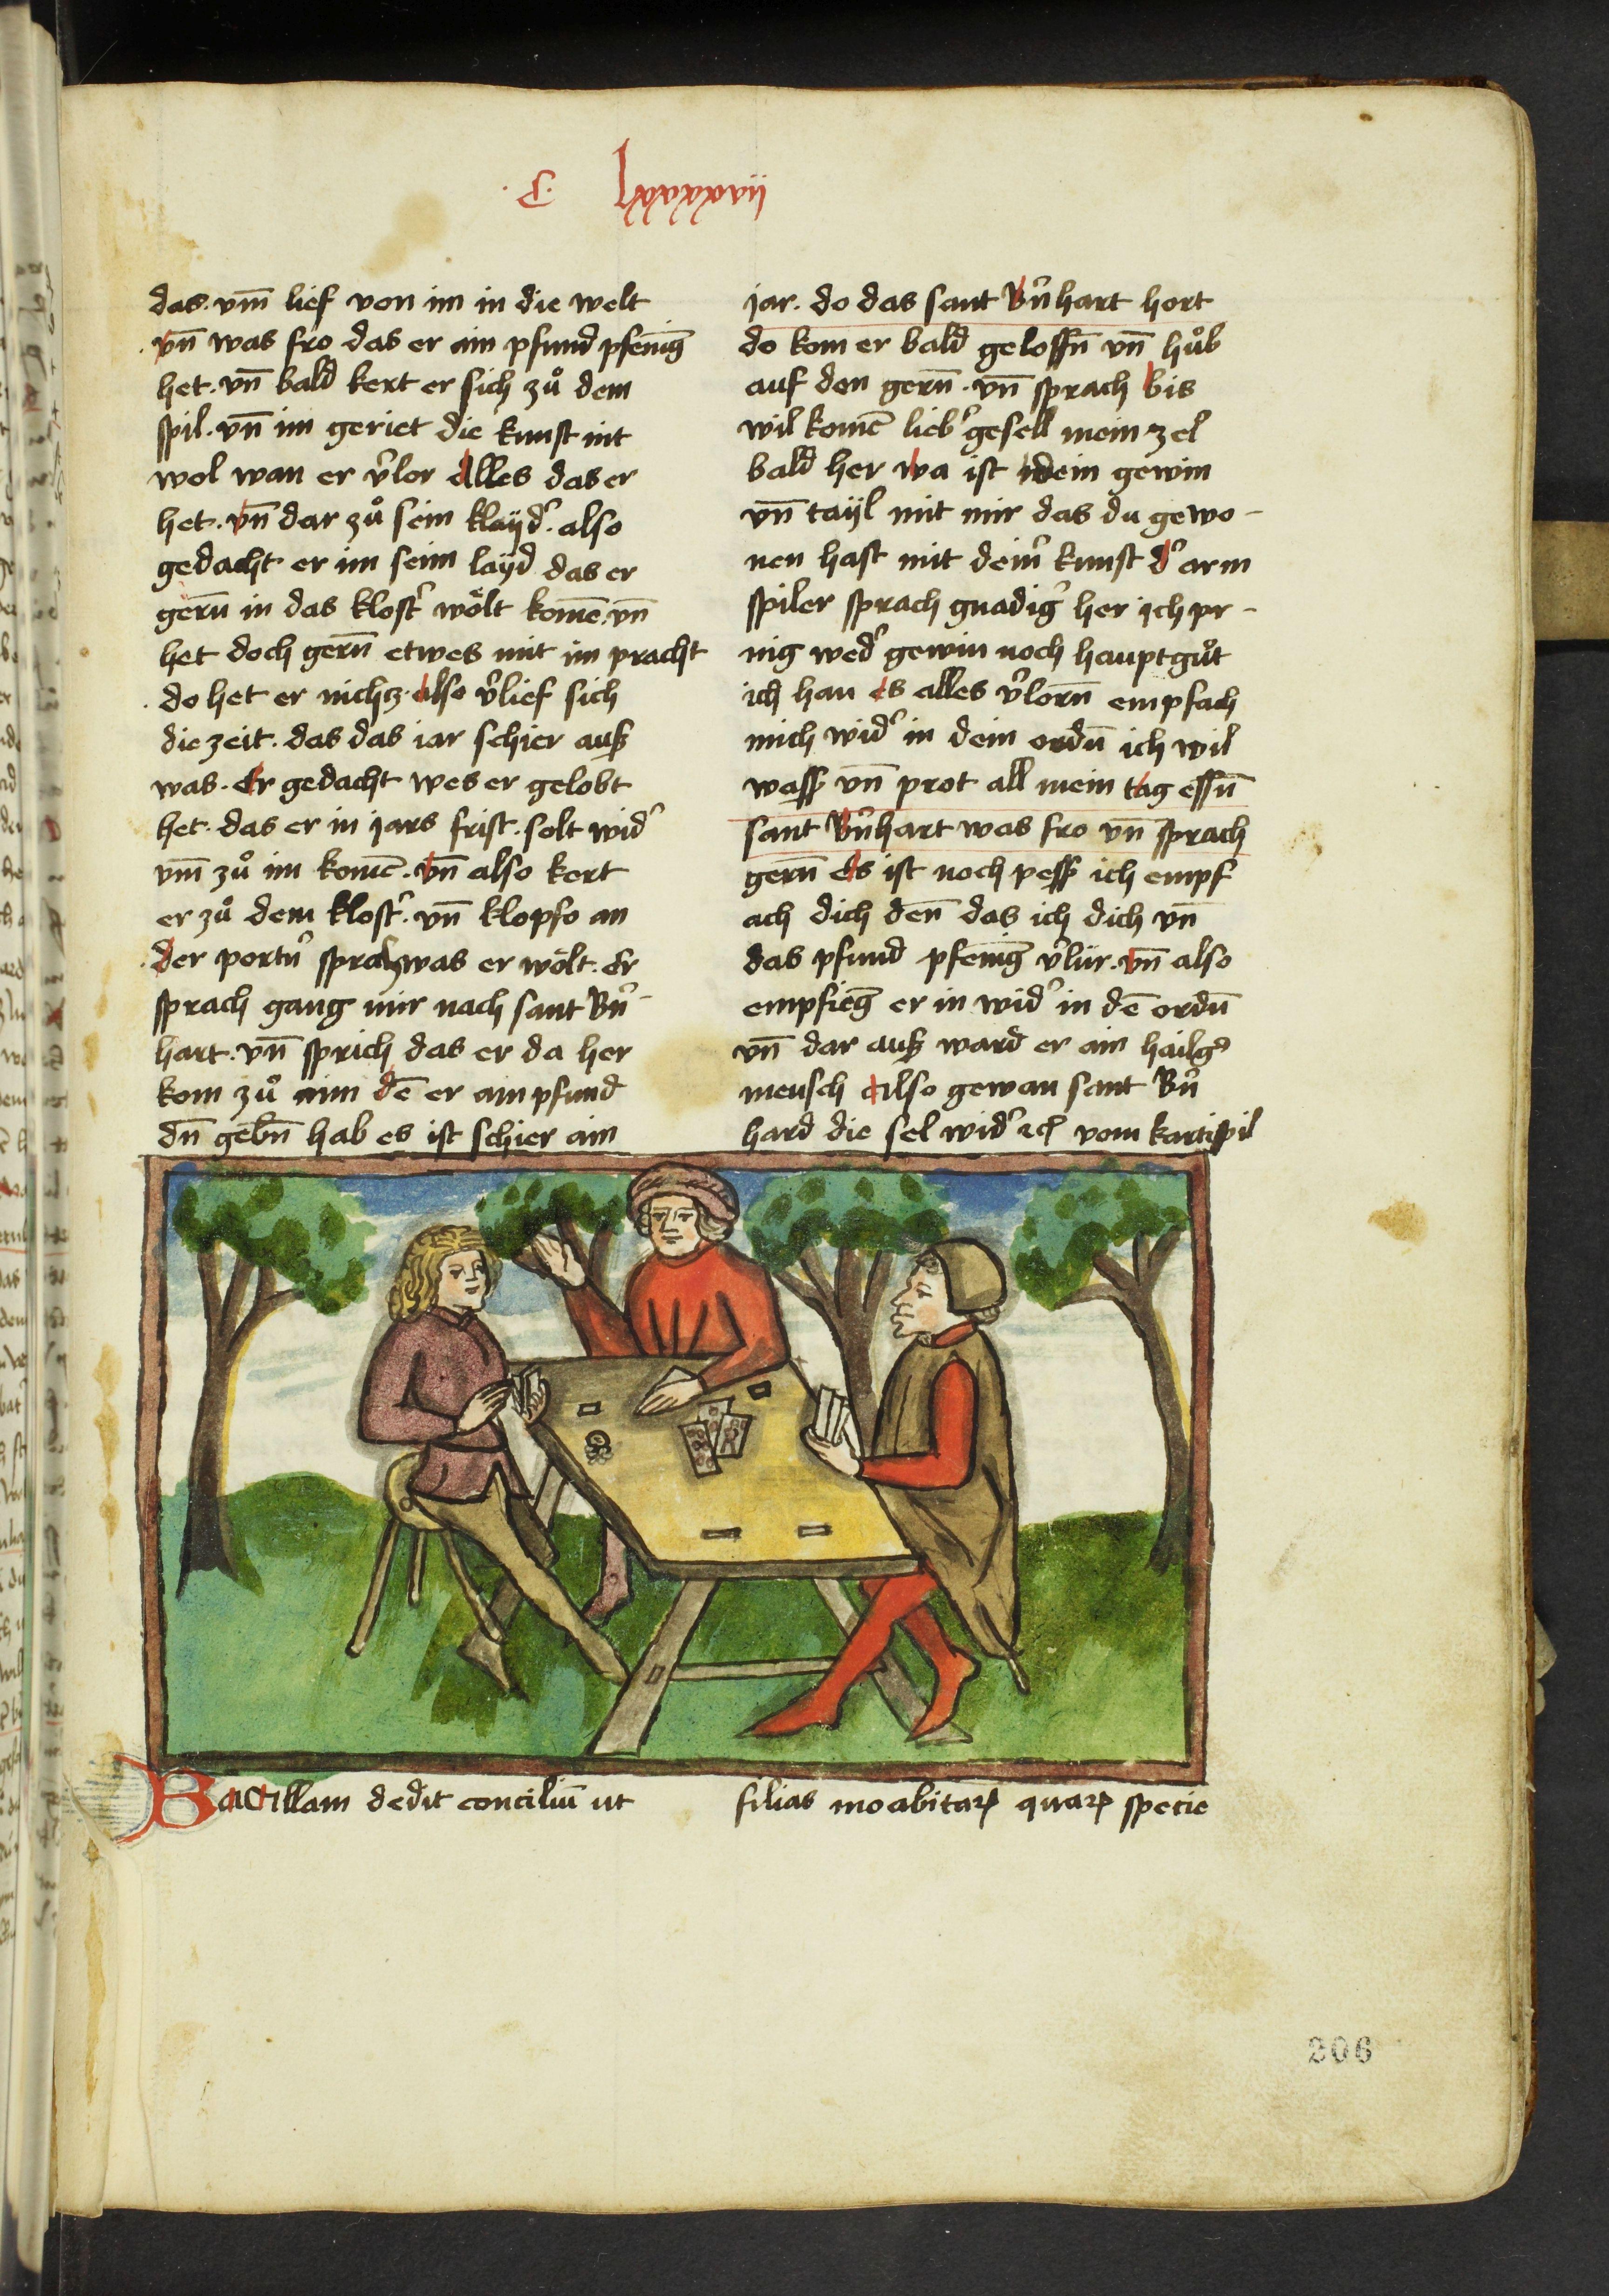 .C. lxxxxvii
das. vm̄ lief von im in die welt
. vn̄ was fro das er ain pfund pfenīg
het. vn̄ bald kert er sich zů dem
spil. vn̄ im geriet die kunst nit
wol wan er v̉lor Alles das er
het. vn̄ dar zů sein klayd̉. also
gedacht er im seim layd das er
gern̄ in das klost̉ wölt komē. vn̄
het doch gern̄ etwes mit im pracht
. do het er nichz. Also v̉lief sich
die zeit. das das iar schier auß
was. Er gedacht wes er gelobt
het. das er in jars frist. solt wid̉
vm̄ zů im komē. vn̄ also kert
er zů dem klost̉. vn̄ klopfo an
. der portn̉ sprach was er wölt. Er
sprach gang mir nach sant Bn̉-
hart. vn̄ sprich das er da her
kom zů aim dē er ain pfund
dn̄ gebn̄ hab es ist schier ain
jar. do das sant Bn̉hart hort
do kom er bald geloffn̄ vn̄ hůb
auf den gern̄. vn̄ sprach bis
wilkomē lieb̉ gesell mein zel
bald her wa ist dein gewin
vn̄ tayl mit mir das du gewo-
nen hast mit dein̉ kunst d̉ arm
spiler sprach gnadig̉ her ich pr-
nig wed̉ gewin noch hauptgůt
ich han es alles v̉lorn̄ empfach
mich wid̉ in dein ordn̄ ich wil
wass̉ vn̄ prot all mein tag essn̄
sant Bn̉hart was fro vn̄ sprach
gern̄ es ist noch pess̉ ich empf
ach dich den̄ das ich dich vn̄
das pfund pfenīg v̉lür. vn̄ also
empfieng er in wid̉ in dē ordn̄
vn̄ dar auß ward er ain hailg̉
mensch Also gewan sant Bn̉
hard die sel wid̉ ꝛc̄ vom kartispil
Bactillam dedit conciliū ut
filias moabitaꝝ quaꝝ specie
206